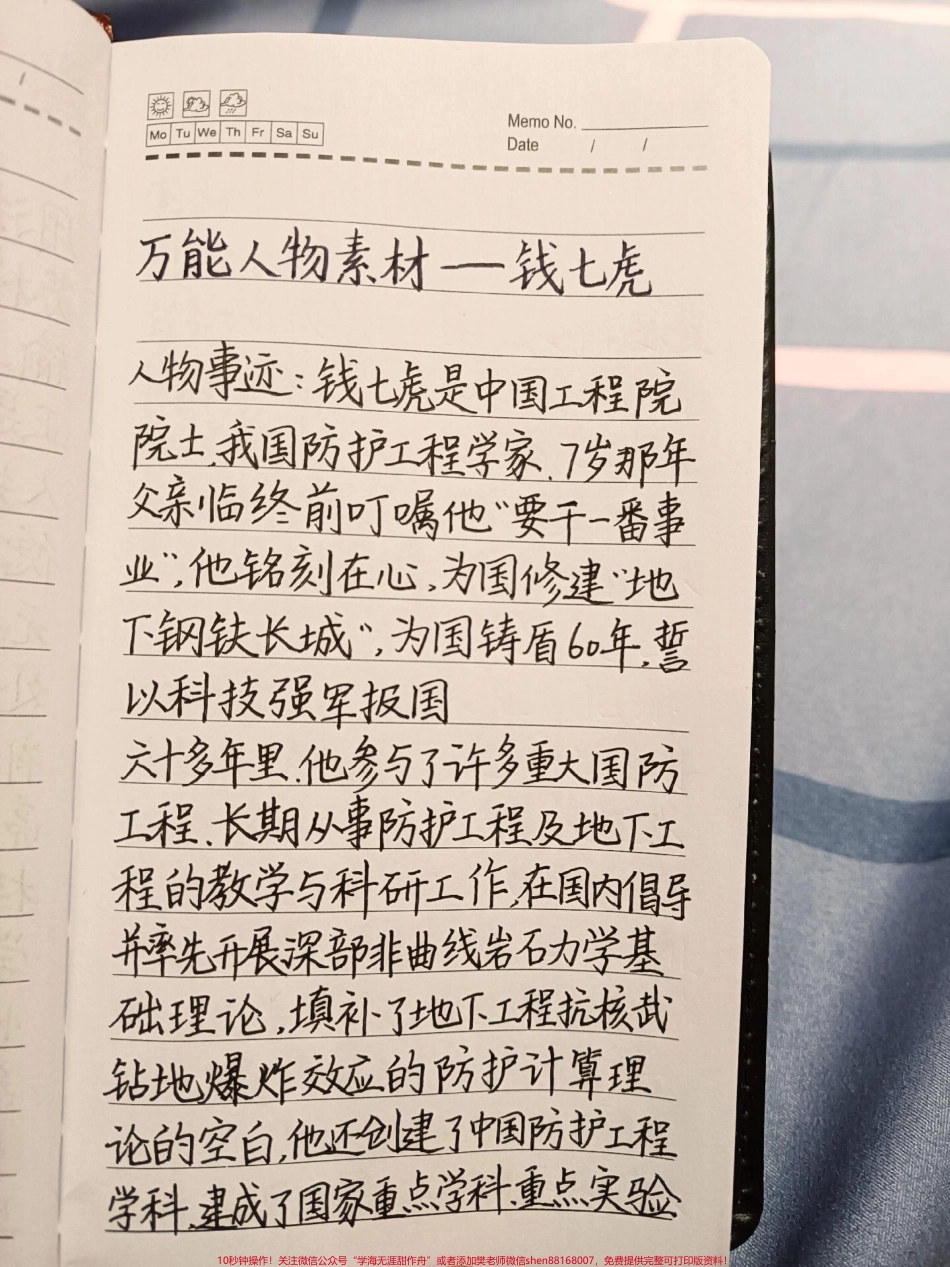 Mo Tu We Th Fr Sa Su
Memo No.
Date / /
万能人物素材——钱七虎
人物事迹：钱七虎是中国工程院
院士,我国防护工程学家.7岁那年
父亲临终前叮嘱他“要干一番事
业”,他铭刻在心,为国修建“地
下钢铁长城”,为国铸盾60年,誓
以科技强军报国
六十多年里.他参与了许多重大国防
工程.长期从事防护工程及地下工
程的教学与科研工作,在国内倡导
并率先开展深部非曲线岩石力学基
础理论,填补了地下工程抗核武
钻地爆炸效应的防护计算理
论的空白,他还创建了中国防护工程
学科.建成了国家重点学科.重点实验
10秒钟操作！关注微信公众号“学海无涯甜作舟”或者添加樊老师微信shen88168007，免费提供完整可打印版资料！